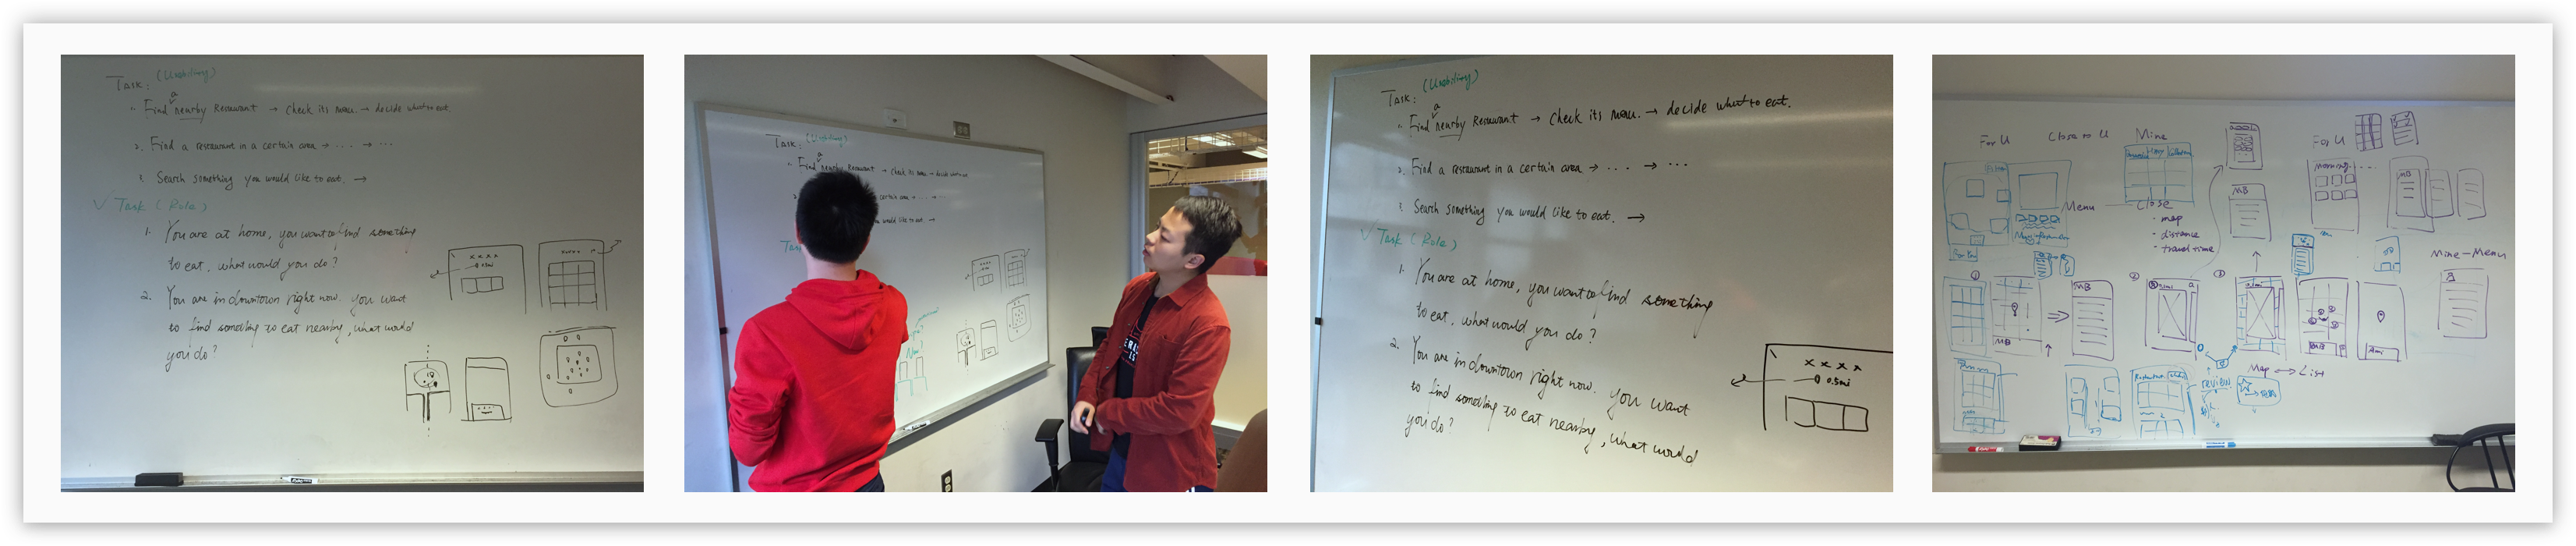 Task: (Usability)
1. Find a nearby Restaurant → check its menu. → decide what to eat.
2. Find a restaurant in a certain area → . . . . → . . .
3. Search something you would like to eat. →
✓ Task (Role)
1. You are at home, you want to find something
to eat, what would you do?
2. You are in downtown right now. you want
to find something to eat nearby, what would
you do?
x x x x
0.5mi
Task: (Usability)
Find a nearby Restaurant → check its menu. → decide what to eat.
certain area → . . . . → . . .
would like to eat. →
Task: (Usability)
1. Find a nearby Restaurant → check its menu. → decide what to eat.
2. Find a restaurant in a certain area → . . . . → . . .
3. Search something you would like to eat. →
✓ Task (Role)
1. You are at home, you want to find something
to eat, what would you do?
2. You are in downtown right now. you want
to find something to eat nearby, what would
you do?
x x x x
0.5mi
For U
Close to U
Mine
For U
Menu
Close
· map
· distance
· travel time
MB
morning
MB
Mine-Menu
①
②
③
MB
MB
Map ↔ List
review